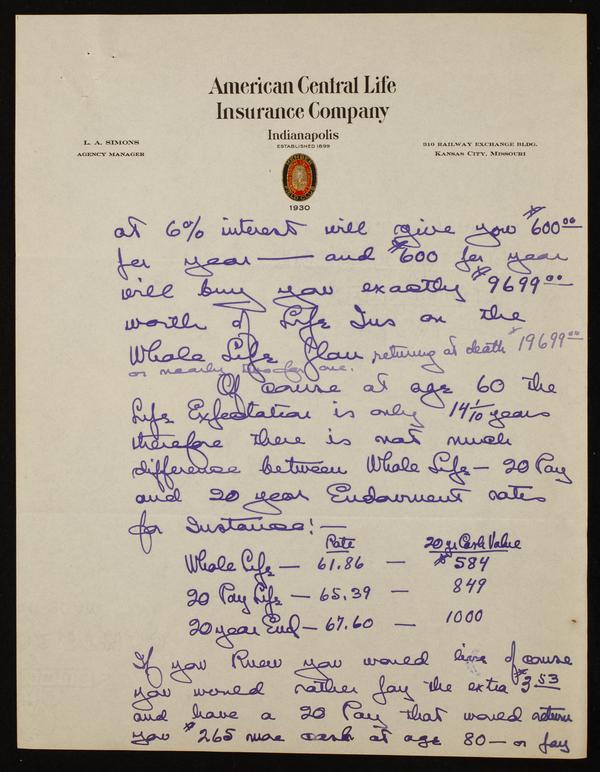 American Central Life
Insurance Company
Indianapolis
ESTABLISHED 1899
L. A. SIMONS
AGENCY MANAGER
910 RAILWAY EXCHANGE BLDG.
KANSAS CITY, MISSOURI
1930
at 6% interest will give you $600 00
per year — and $600 per year
will buy you exactly $9699 00
worth of Life Ins on the
Whole Life Plan returning at death $19699 00
or nearly two for one.
Of course at age 60 the
Life Expectation is only 14 1/10 years
therefore there is not much
difference between Whole Life — 20 Pay
and 20 year Endowment rates
for Instance! —
Rate 20 yr Cash Value
Whole Life — 61.86 — $584
20 Pay Life — 65.39 — 849
20 year End — 67.60 — 1000
If you knew you would live of course
you would rather pay the extra $3 53
and have a 20 Pay that would return
you $265 more cash at age 80 — or pay